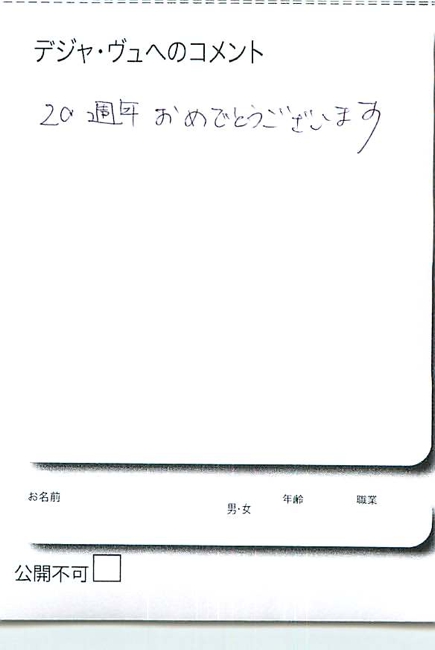 デジャ・ヴュへのコメント
20週年おめでとうございます
お名前
男・女
年齢
職業
公開不可